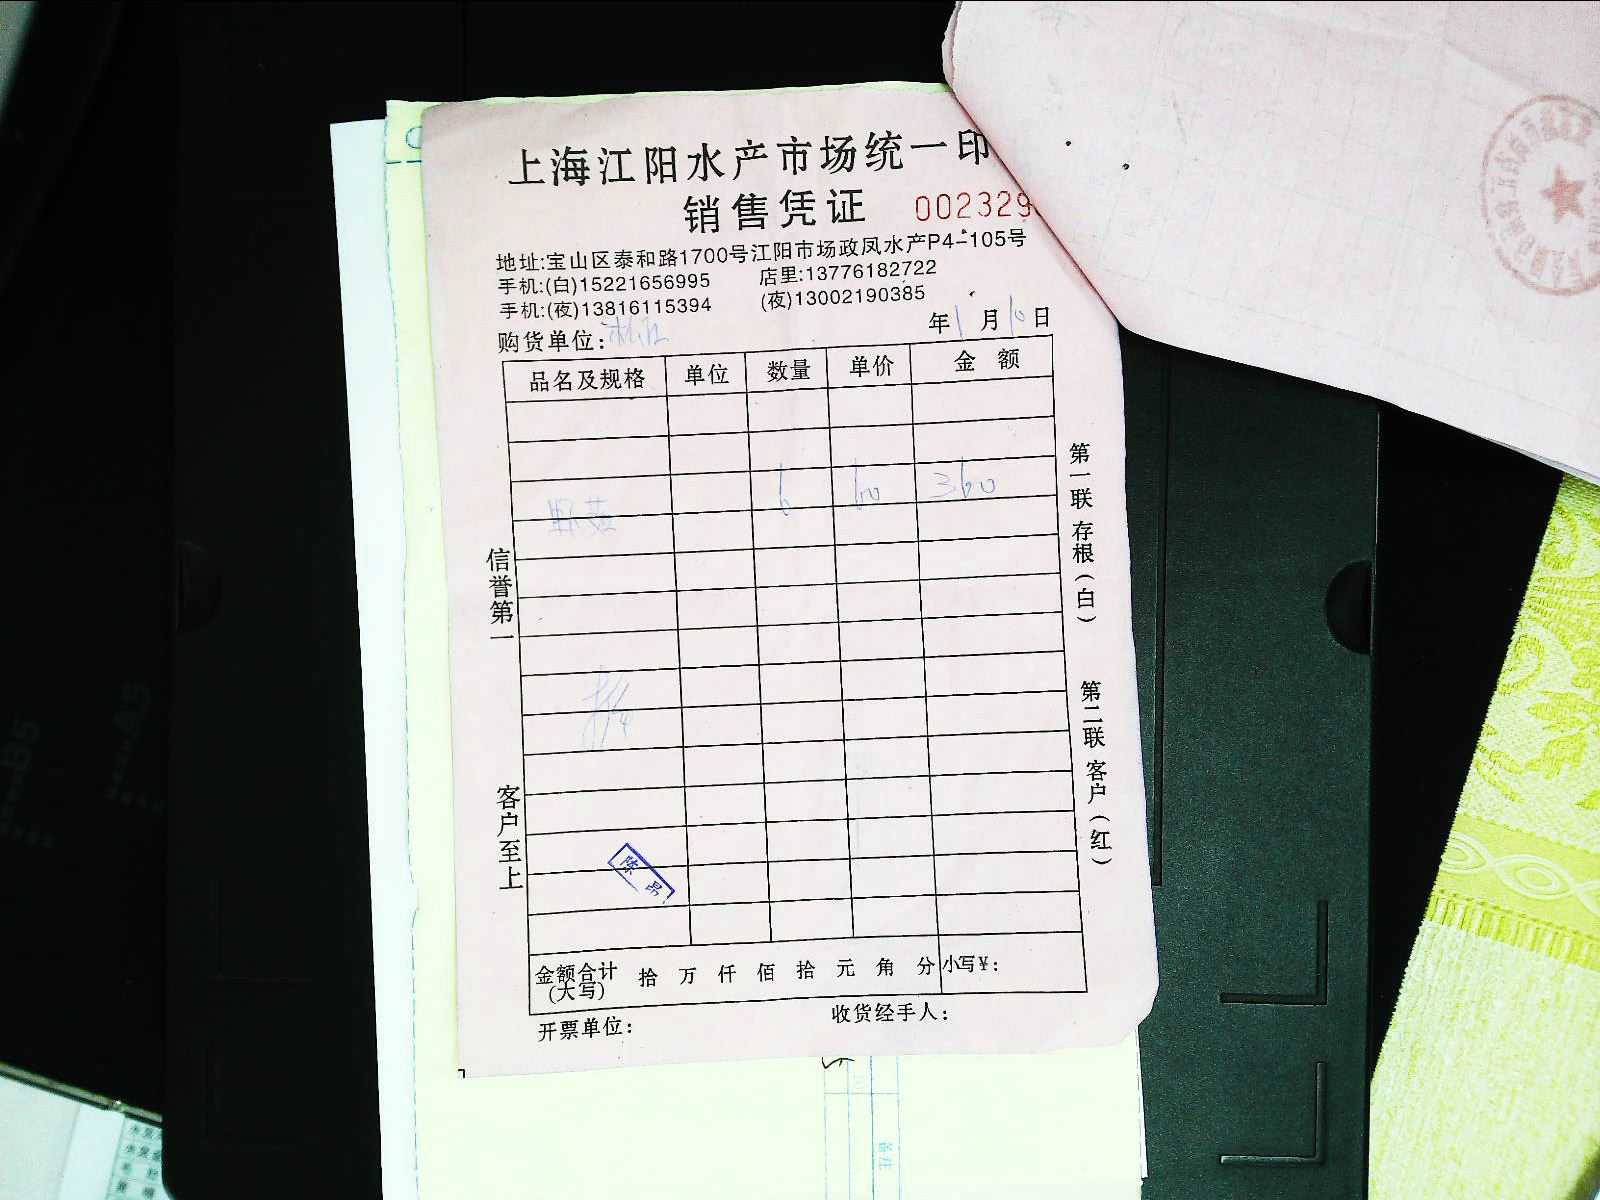 上海江阳水产市场统一印
销售凭证 002329
地址:宝山区泰和路1700号江阳市场政凤水产P4-105号
手机:(白)15221656995 店里:13776182722
手机:(夜)13816115394 (夜)13002190385
购货单位: 年1月10日
品名及规格 单位 数量 单价 金额
6 60 360
信誉第一
客户至上
第一联 存根(白)
第二联 客户(红)
陈昂
金额合计(大写) 拾 万 仟 佰 拾 元 角 分 小写¥:
开票单位: 收货经手人:
备注
A5
B5